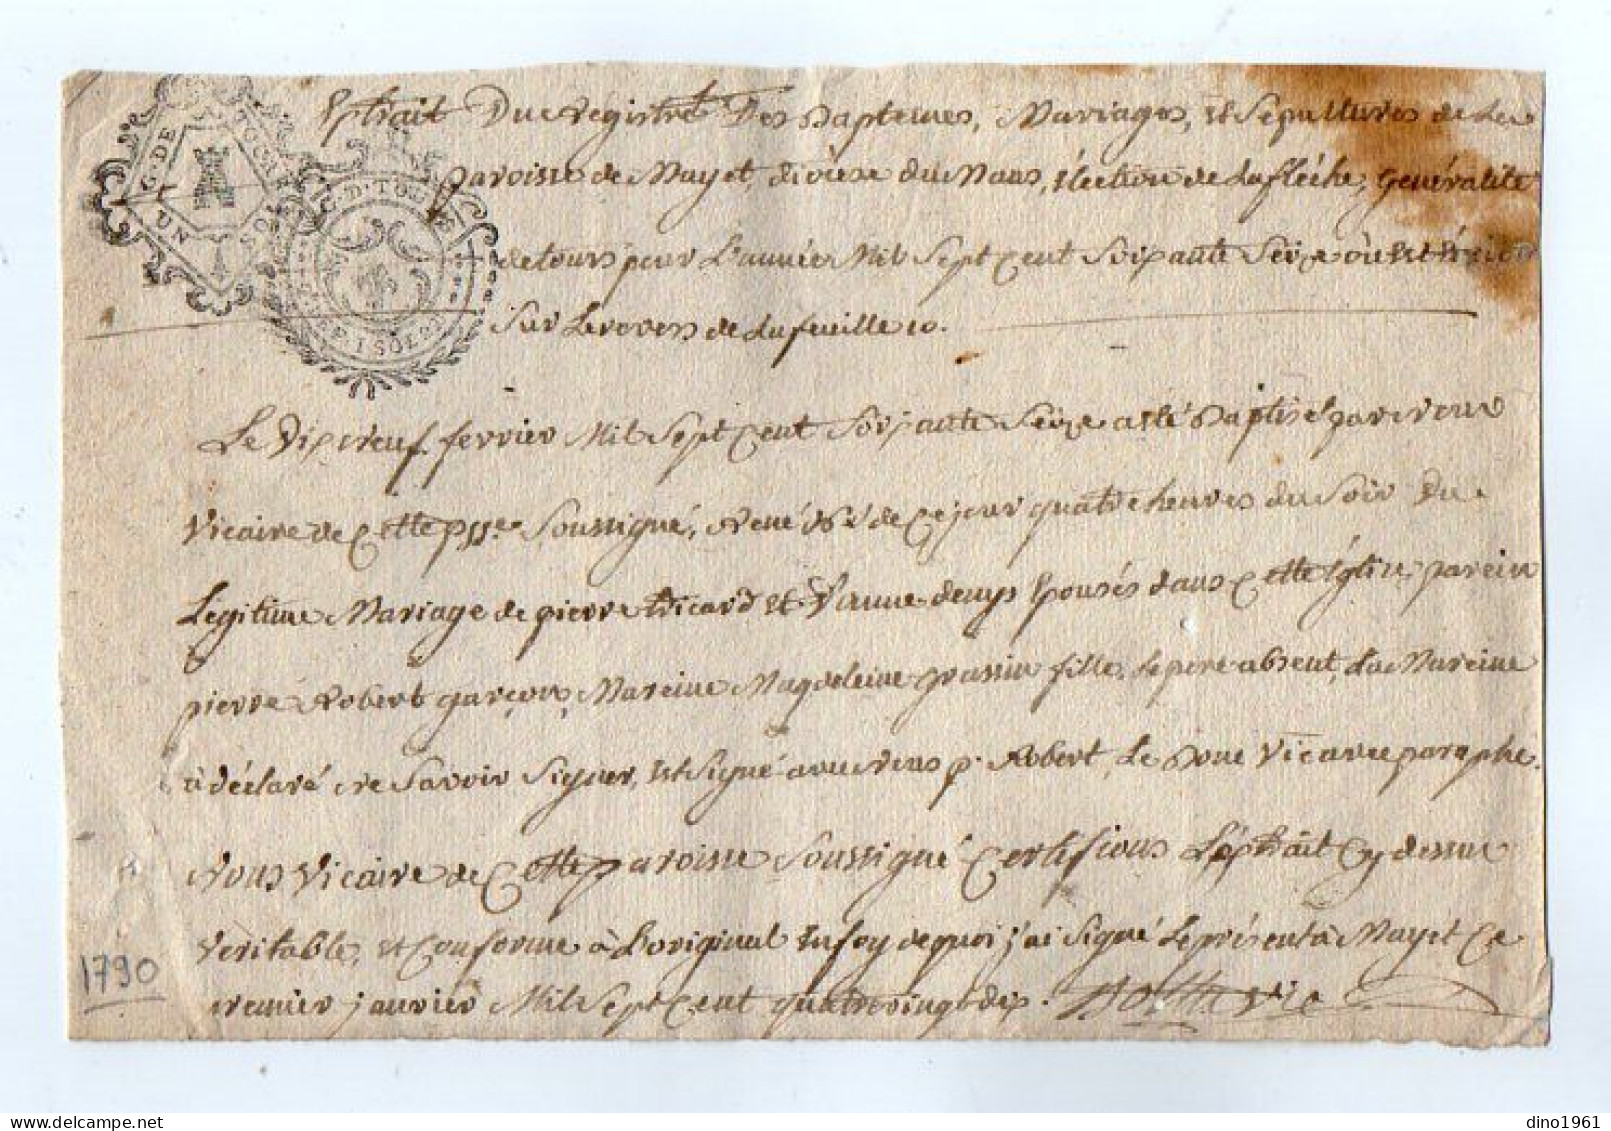 Extrait Du registre Des Baptemes, Mariages, et Sepultures de La
paroisse de Mayet, diocese du Mans, Election de Lafléche, Généralité
de tours pour L'année Mil Sept Cent Soixante Seize ou est Ecrit
Sur Le revers de La feuille 10.
Le Dix neuf fevrier Mil Sept Cent Soixante Seize a esté Baptisé par nous
Vicaire de Cette psse Soussigné, René né de Ce jour quatre heures du Soir Du
Legitime Mariage de pierre Ricard et Denys Epousés dans Cette Eglise, parein
pierre Robert garçon, Mareine Magdeleine passin fille, Le pere absent, La Mareine
à déclaré ne Savoir Signer, est Signé avec nous p. Robert, Le Vic avec paraphe.
Nous Vicaire de Cette paroisse Soussigné Certifions L'extrait Cy dessus
Véritable, et Conforme à L'original En foy de quoi j'ai Signé Le présent à Mayet Ce
premier janvier Mil Sept Cent quatre vingt dix.
G. DE TOURS
UN SOL
G. D. TOURS
1790
dino1961